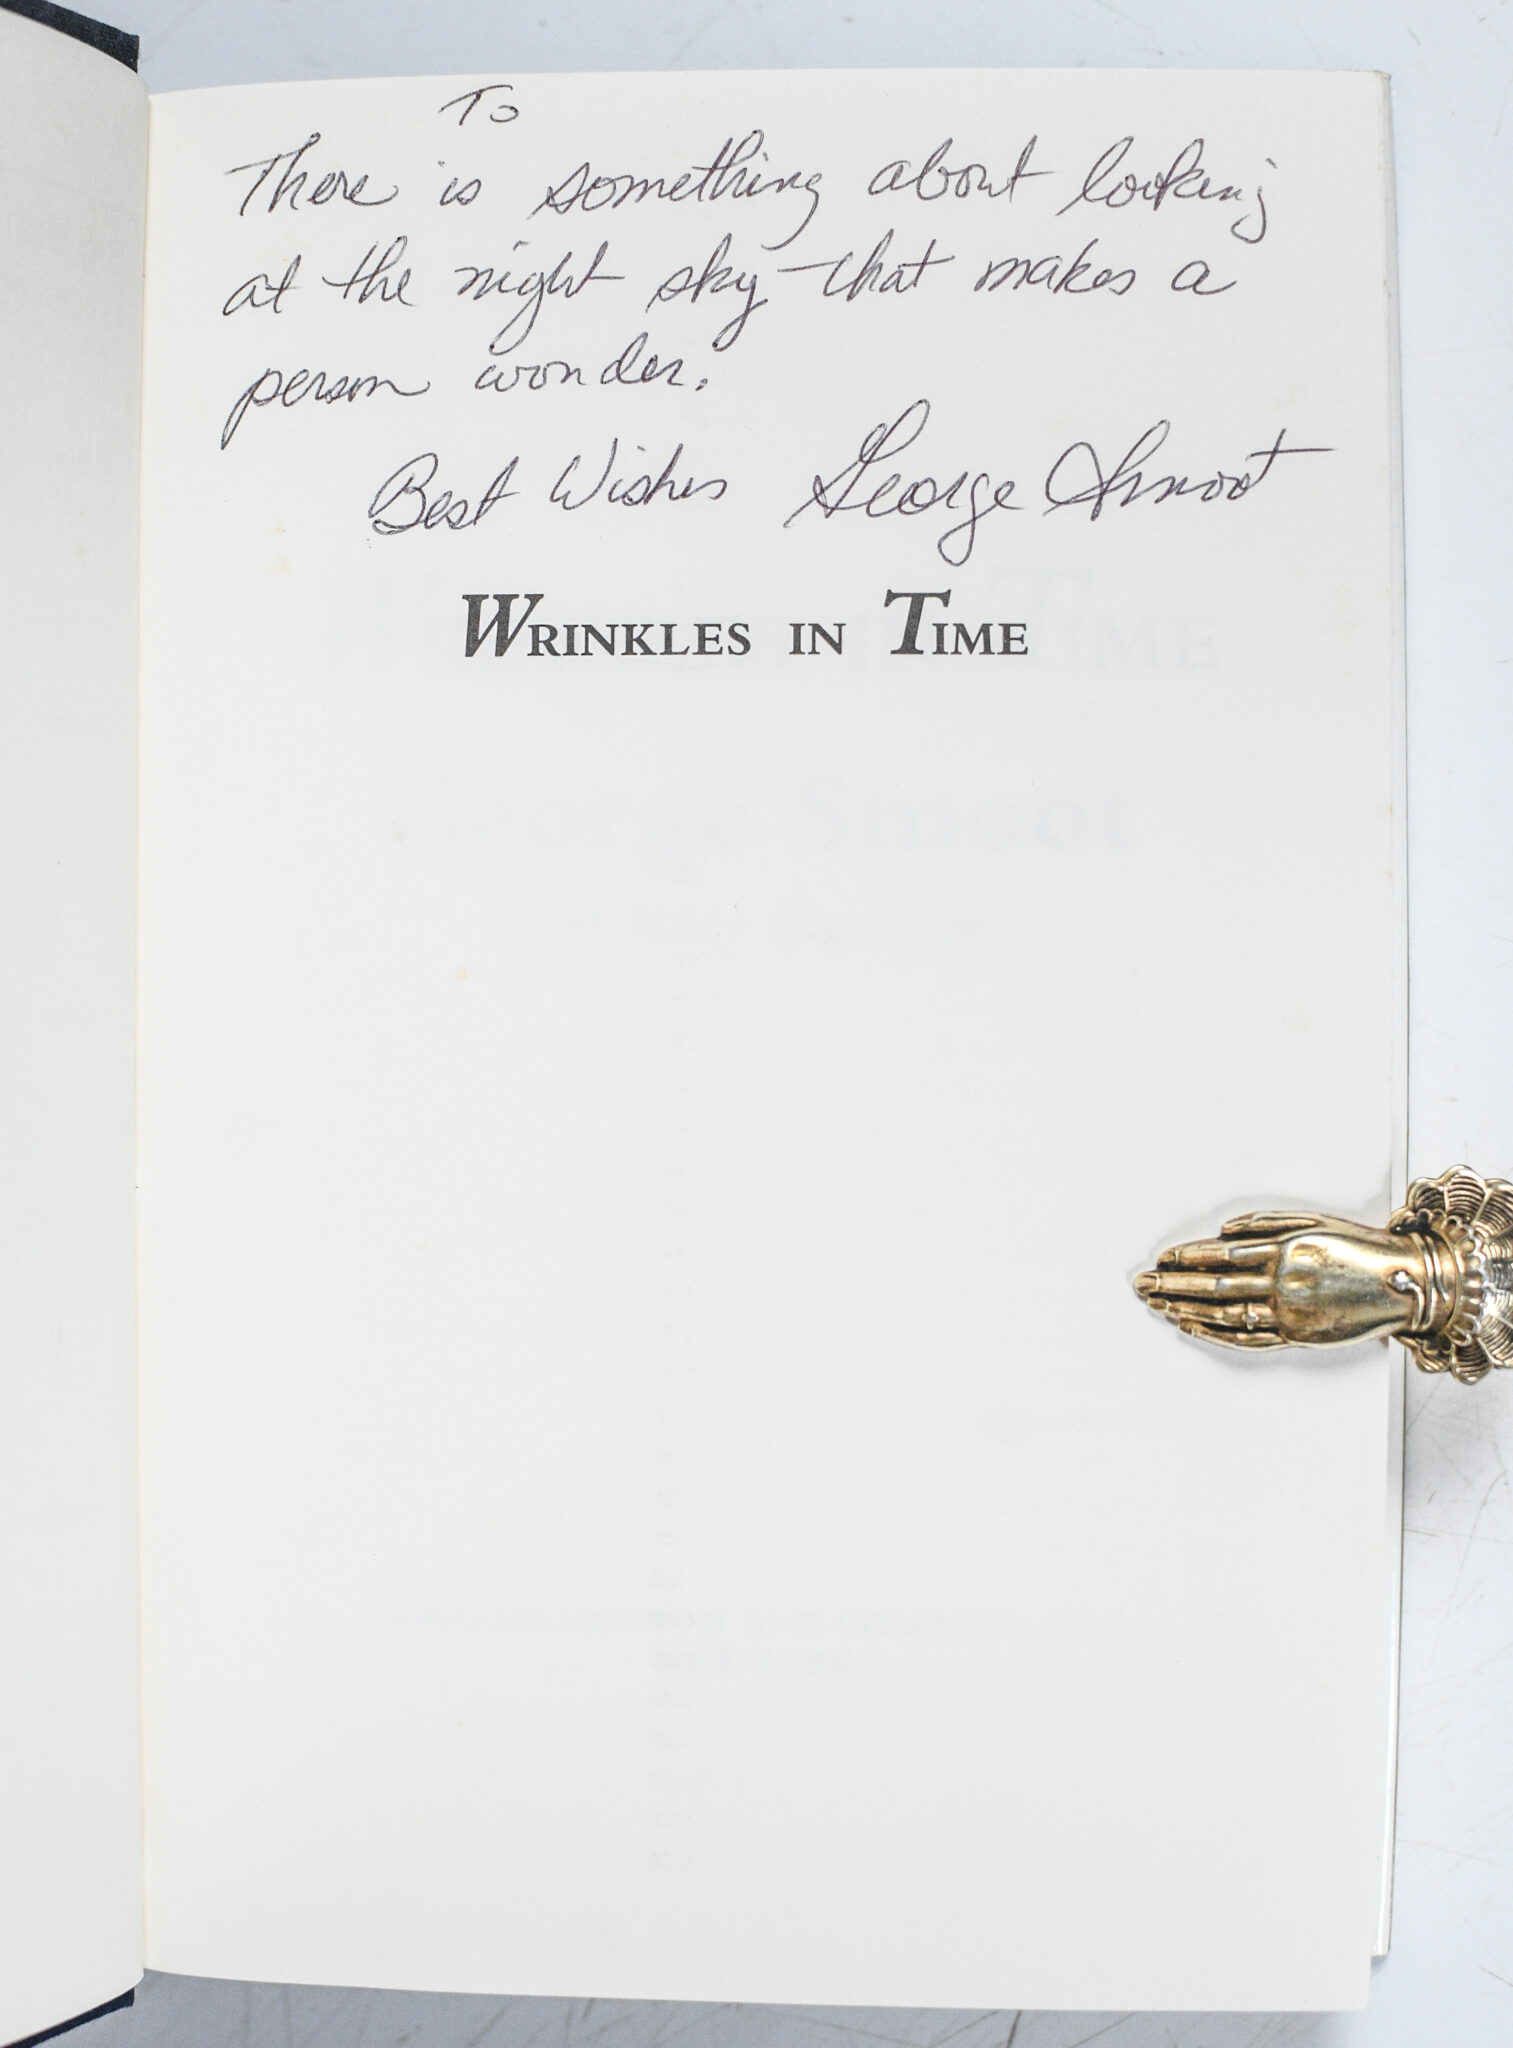 To
There is something about looking
at the night sky that makes a
person wonder.
Best Wishes George Smoot
WRINKLES IN TIME
TIME
George Smoot